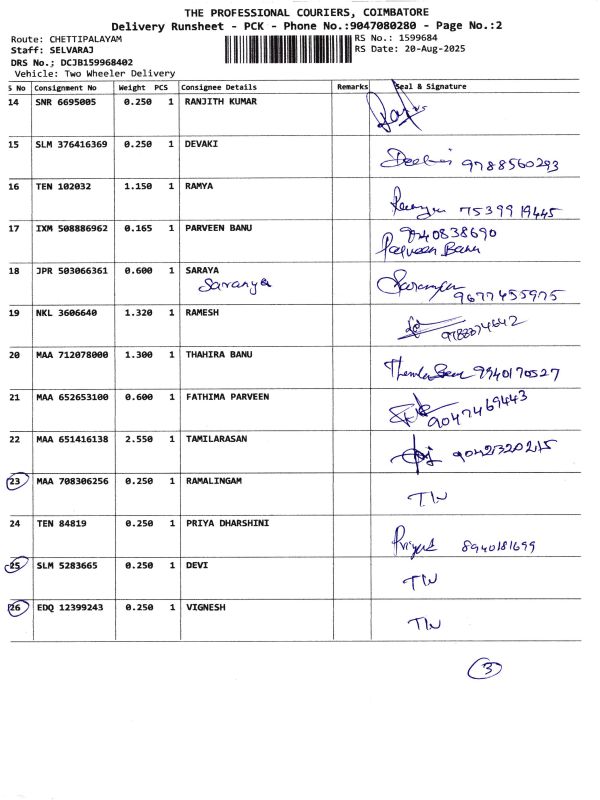 THE PROFESSIONAL COURIERS, COIMBATORE
Delivery Runsheet - PCK - Phone No.:9047080280 - Page No.:2
Route: CHETTIPALAYAM
Staff: SELVARAJ
DRS No.; DCJB159968402
Vehicle: Two Wheeler Delivery
RS No.: 1599684
RS Date: 20-Aug-2025
S No Consignment No Weight PCS Consignee Details Remarks Seal & Signature
14 SNR 6695005 0.250 1 RANJITH KUMAR
15 SLM 376416369 0.250 1 DEVAKI 9788560293
16 TEN 102032 1.150 1 RAMYA 7539919445
17 IXM 508886962 0.165 1 PARVEEN BANU 9940838690
Parveen Banu
18 JPR 503066361 0.600 1 SARAYA
Saranya Saranya 9677455975
19 NKL 3606640 1.320 1 RAMESH
20 MAA 712078000 1.300 1 THAHIRA BANU 9940170527
21 MAA 652653100 0.600 1 FATHIMA PARVEEN 9047469443
22 MAA 651416138 2.550 1 TAMILARASAN 9042320215
23 MAA 708306256 0.250 1 RAMALINGAM TW
24 TEN 84819 0.250 1 PRIYA DHARSHINI 8940181699
25 SLM 5283665 0.250 1 DEVI TW
26 EDQ 12399243 0.250 1 VIGNESH TW
3